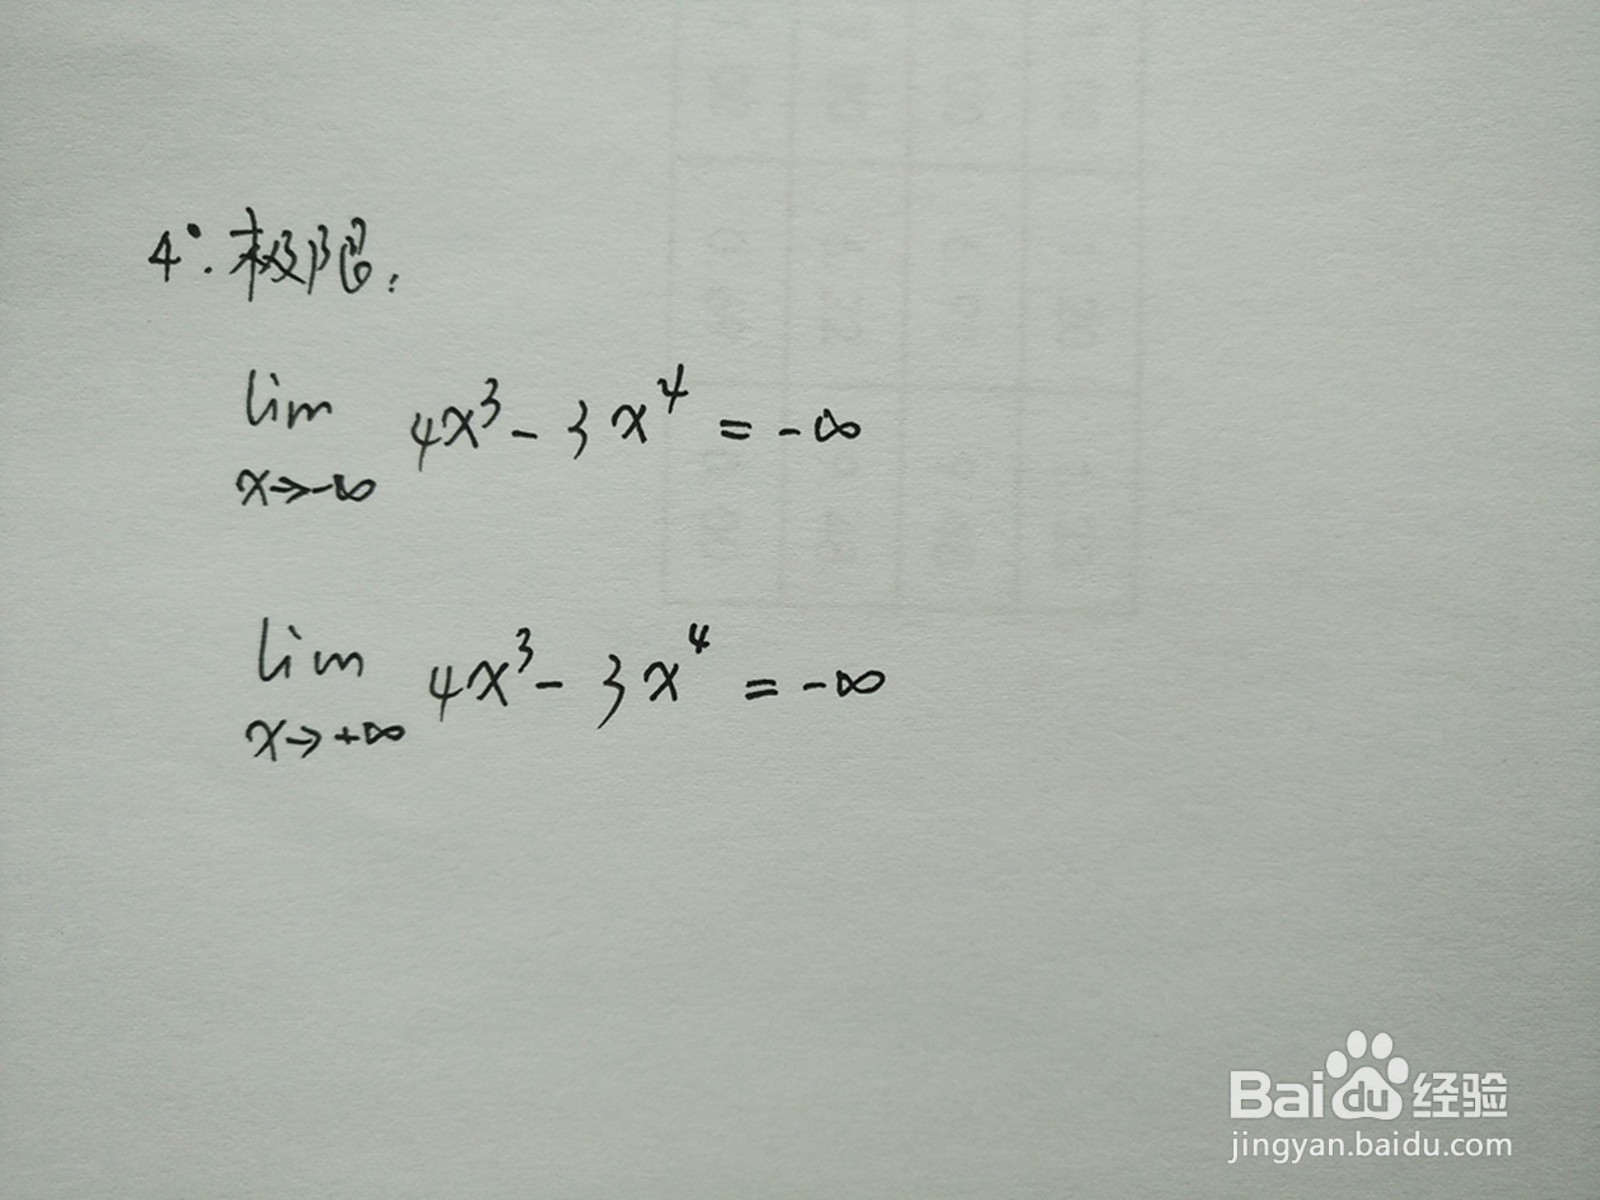 4°. 极限:
lim 4x³ - 3x⁴ = -∞
x→-∞
lim 4x³ - 3x⁴ = -∞
x→+∞
Baidu 经验
jingyan.baidu.com